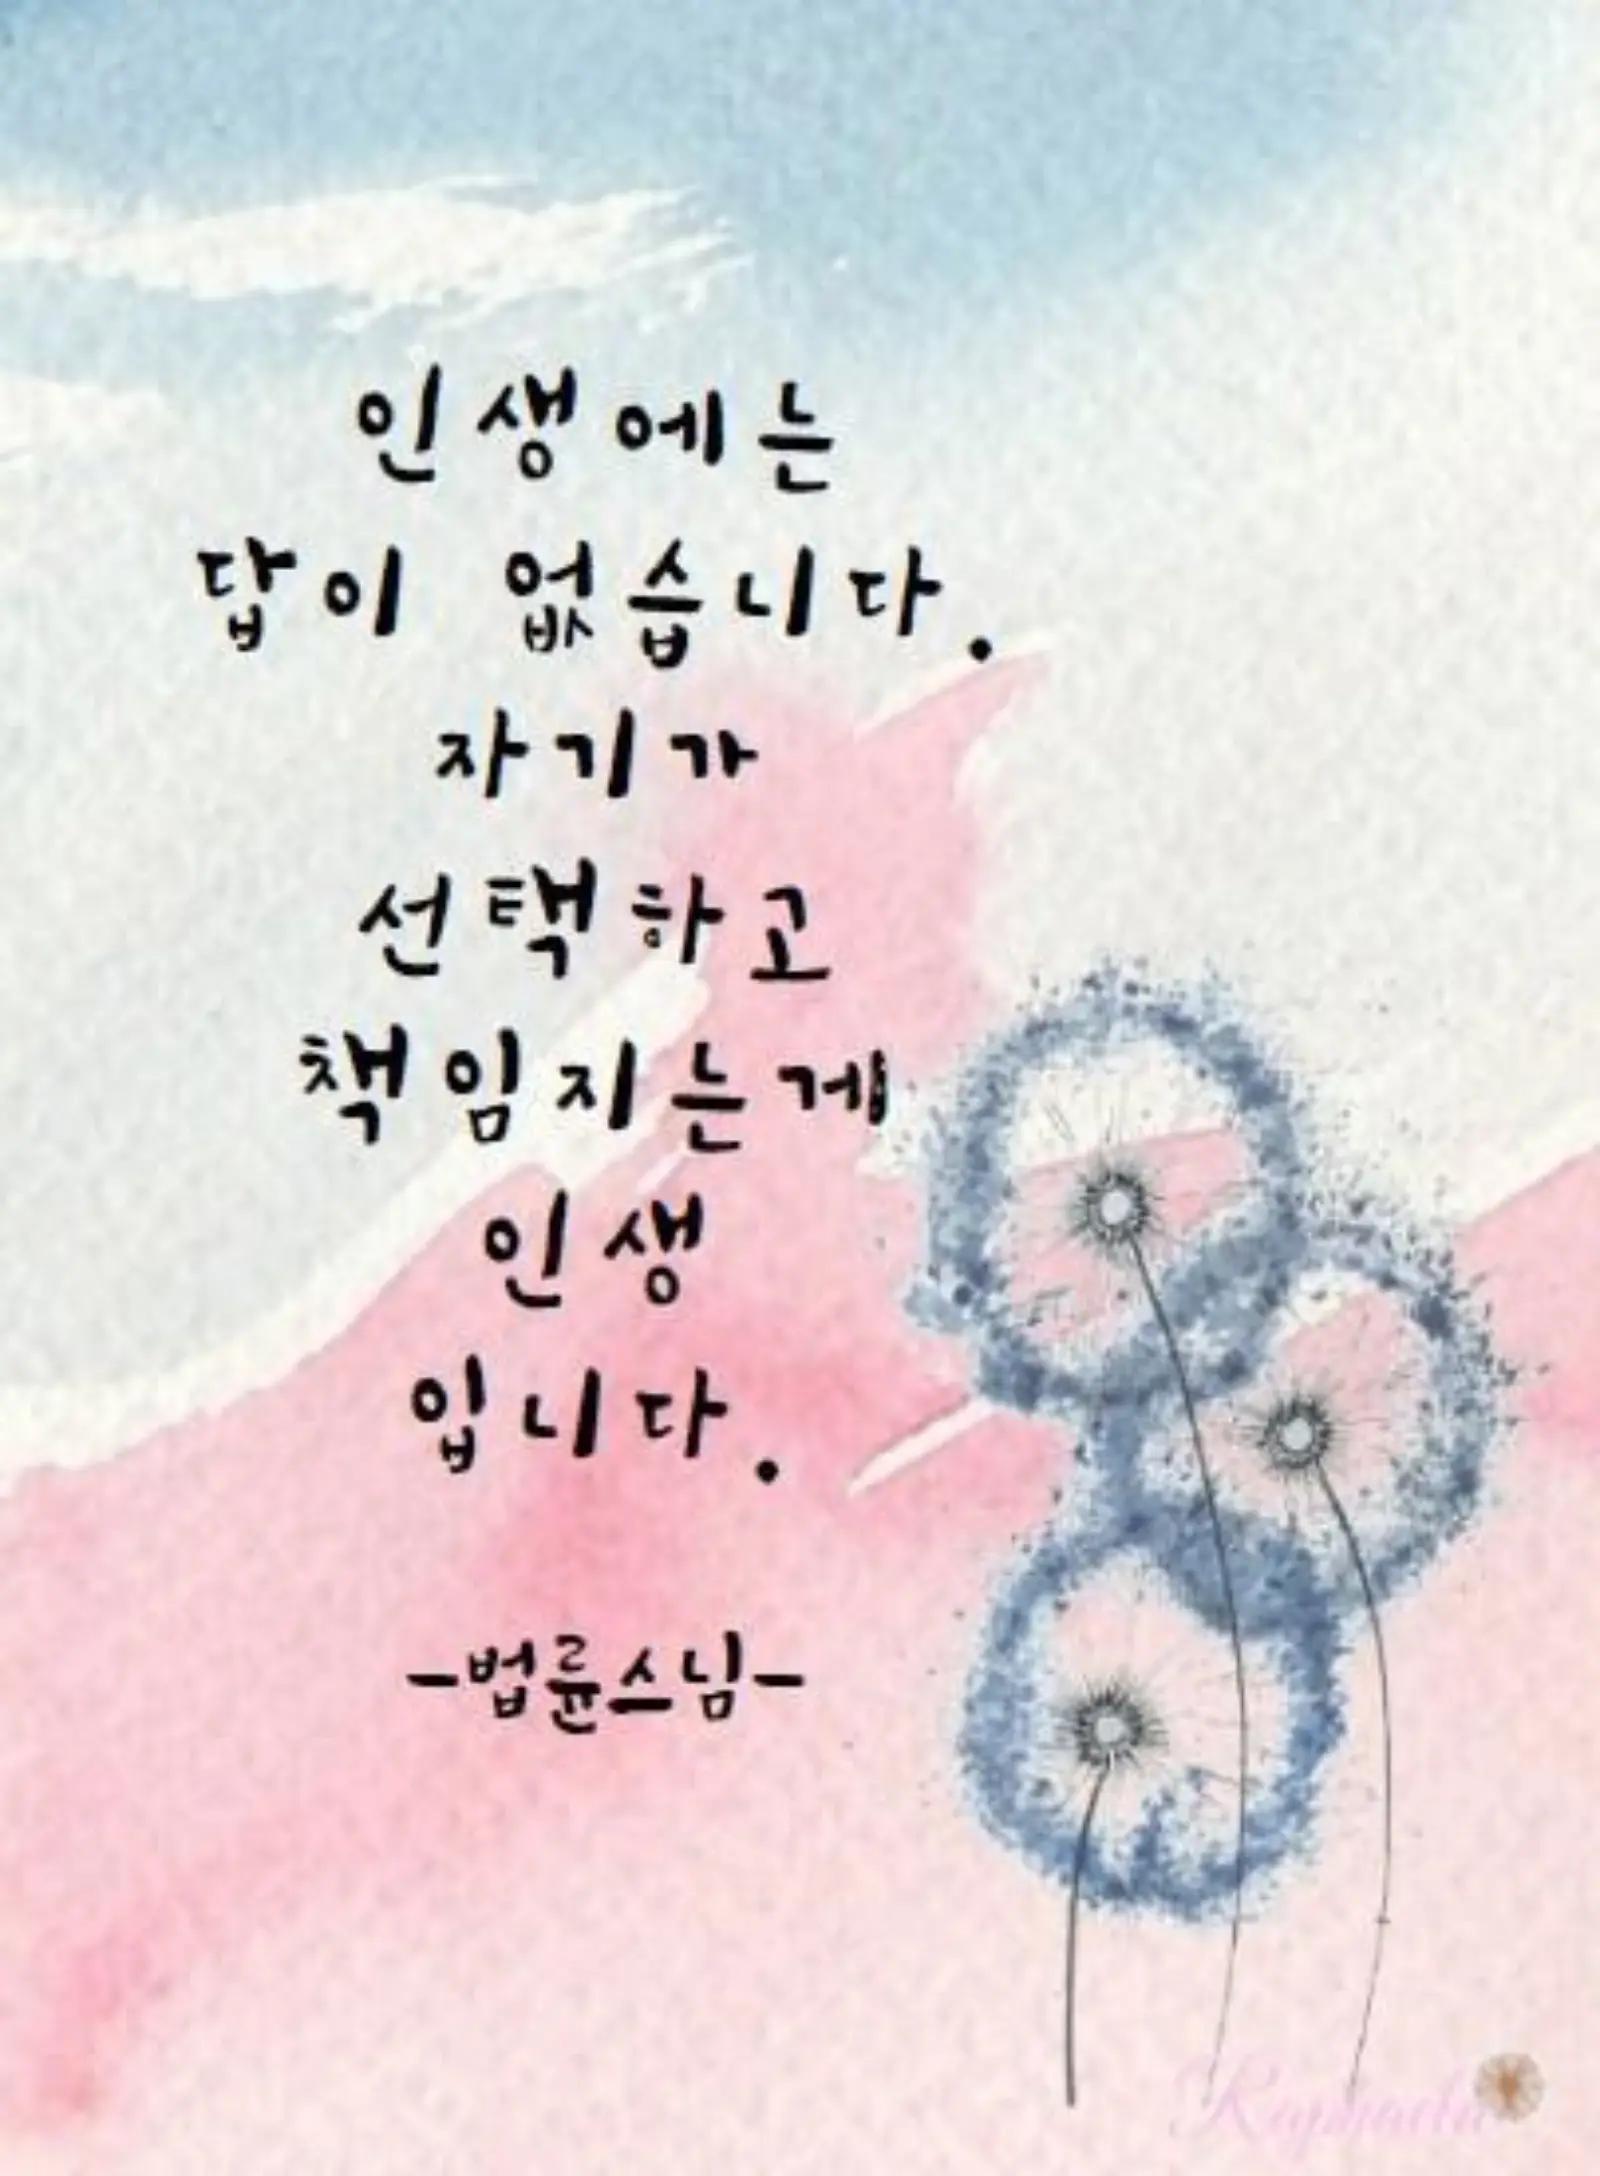 인생에는
답이 없습니다.
자기가
선택하고
책임지는게
인생
입니다.
-법륜스님-